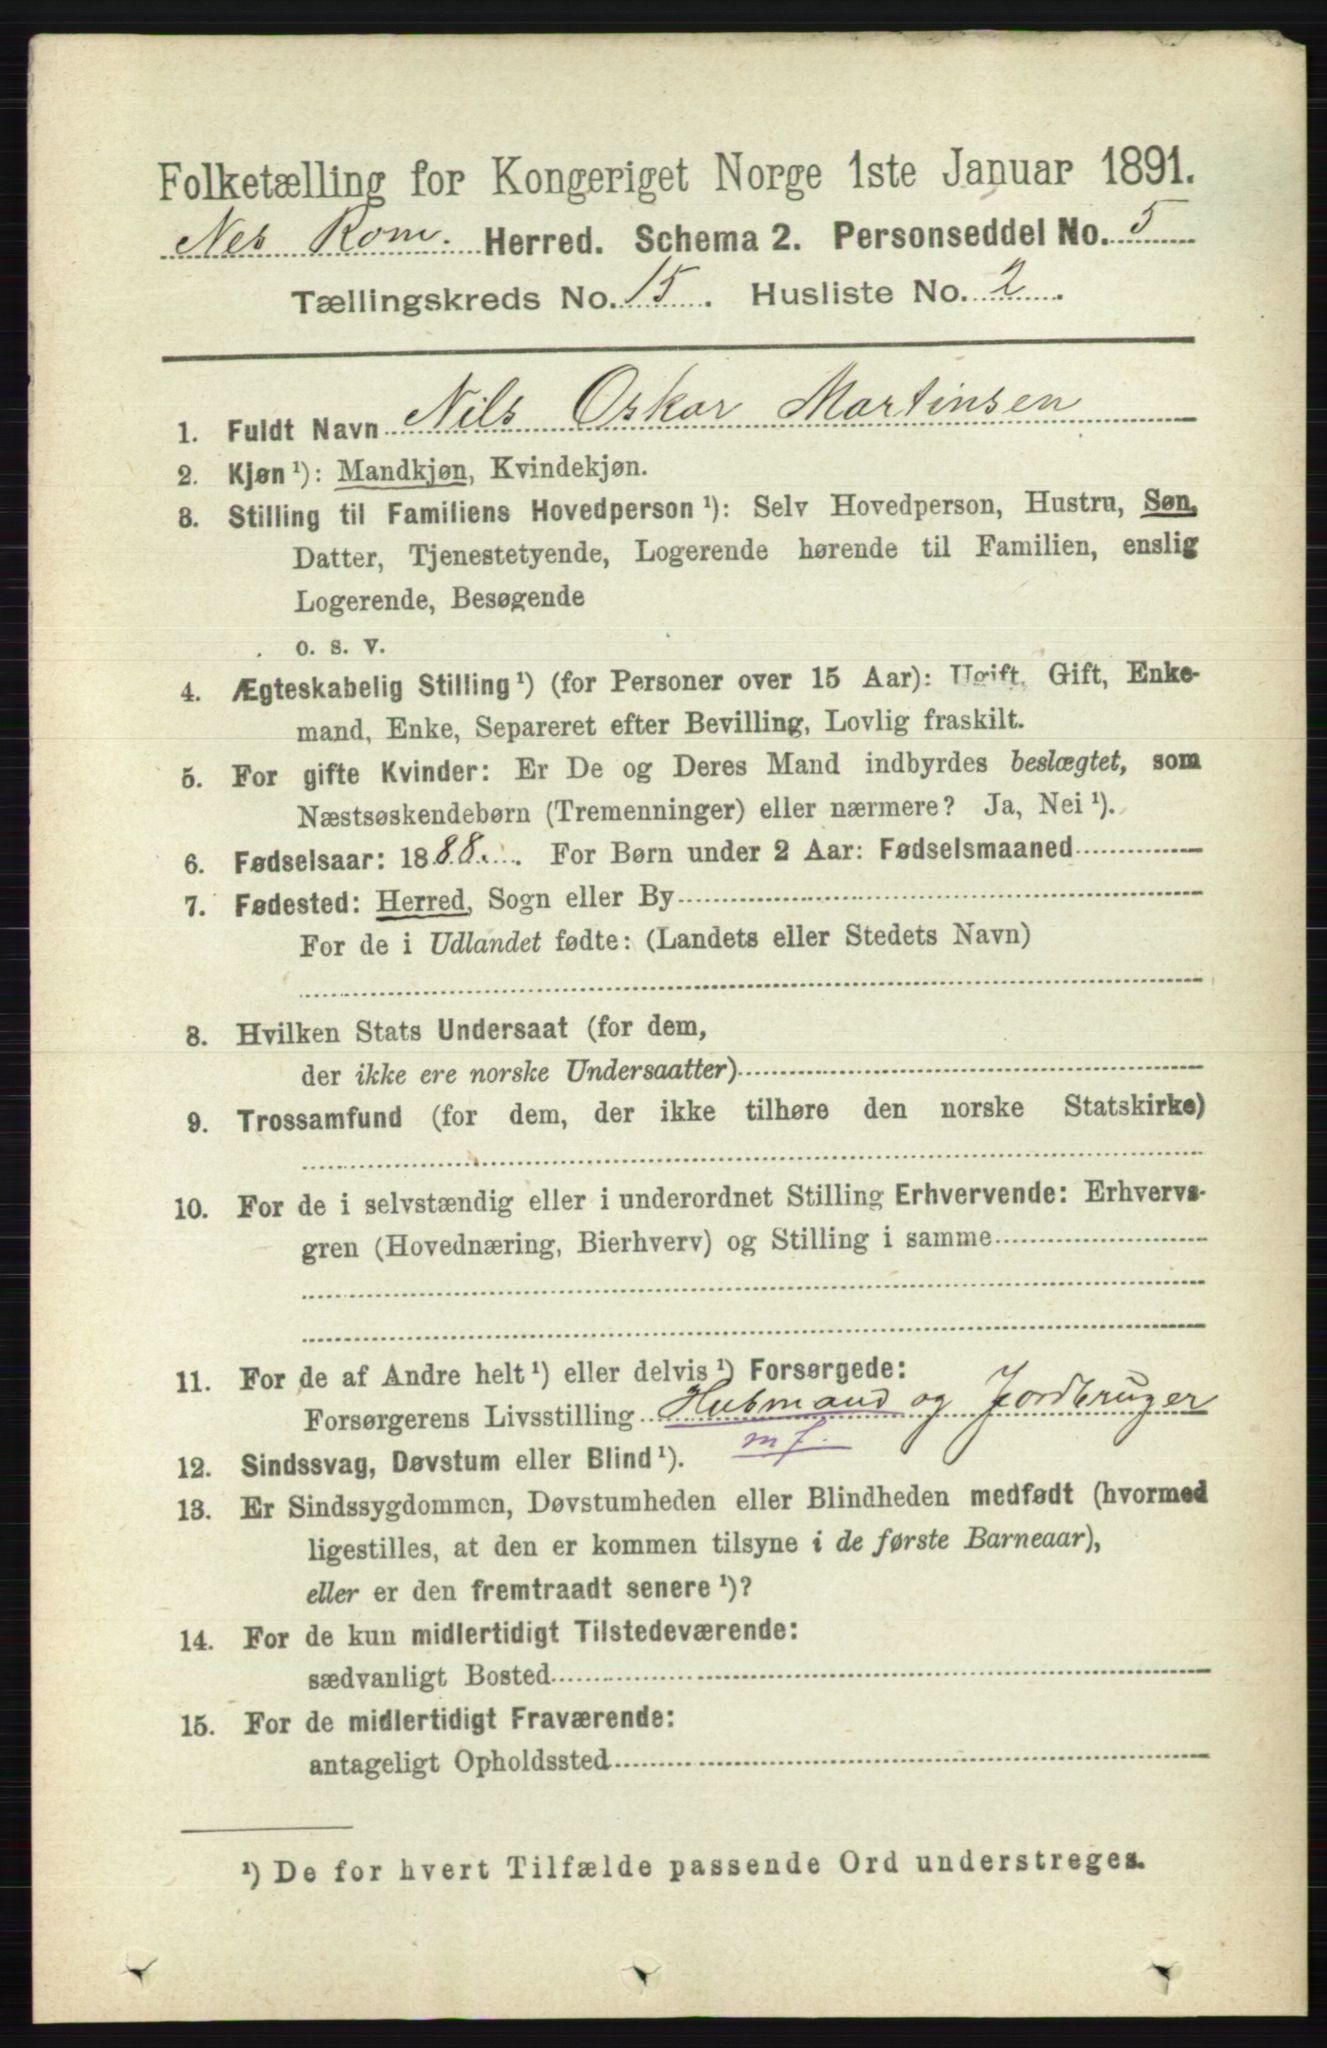 Folketælling for Kongeriget Norge 1ste Januar 1891.
Nes Rom. Herred. Schema 2. Personseddel No. 5
Tællingskreds No. 15. Husliste No. 2.
1. Fuldt Navn Nils Oskar Martinsen
2. Kjøn ¹): Mandkjøn, Kvindekjøn.
3. Stilling til Familiens Hovedperson ¹): Selv Hovedperson, Hustru, Søn,
Datter, Tjenestetyende, Logerende hørende til Familien, enslig
Logerende, Besøgende
o. s. v.
4. Ægteskabelig Stilling ¹) (for Personer over 15 Aar): Ugift, Gift, Enke-
mand, Enke, Separeret efter Bevilling, Lovlig fraskilt.
5. For gifte Kvinder: Er De og Deres Mand indbyrdes beslægtet, som
Næstsøskendebørn (Tremenninger) eller nærmere? Ja, Nei ¹).
6. Fødselsaar: 1888. For Børn under 2 Aar: Fødselsmaaned
7. Fødested: Herred, Sogn eller By
For de i Udlandet fødte: (Landets eller Stedets Navn)
8. Hvilken Stats Undersaat (for dem,
der ikke ere norske Undersaatter)
9. Trossamfund (for dem, der ikke tilhøre den norske Statskirke)
10. For de i selvstændig eller i underordnet Stilling Erhvervende: Erhvervs-
gren (Hovednæring, Bierhverv) og Stilling i samme
11. For de af Andre helt ¹) eller delvis ¹) Forsørgede:
Forsørgerens Livsstilling Husmand og Jordbruger
m J.
12. Sindssvag, Døvstum eller Blind ¹).
13. Er Sindssygdommen, Døvstumheden eller Blindheden medfødt (hvormed
ligestilles, at den er kommen tilsyne i de første Barneaar),
eller er den fremtraadt senere ¹)?
14. For de kun midlertidigt Tilstedeværende:
sædvanligt Bosted
15. For de midlertidigt Fraværende:
antageligt Opholdssted
¹) De for hvert Tilfælde passende Ord understreges.